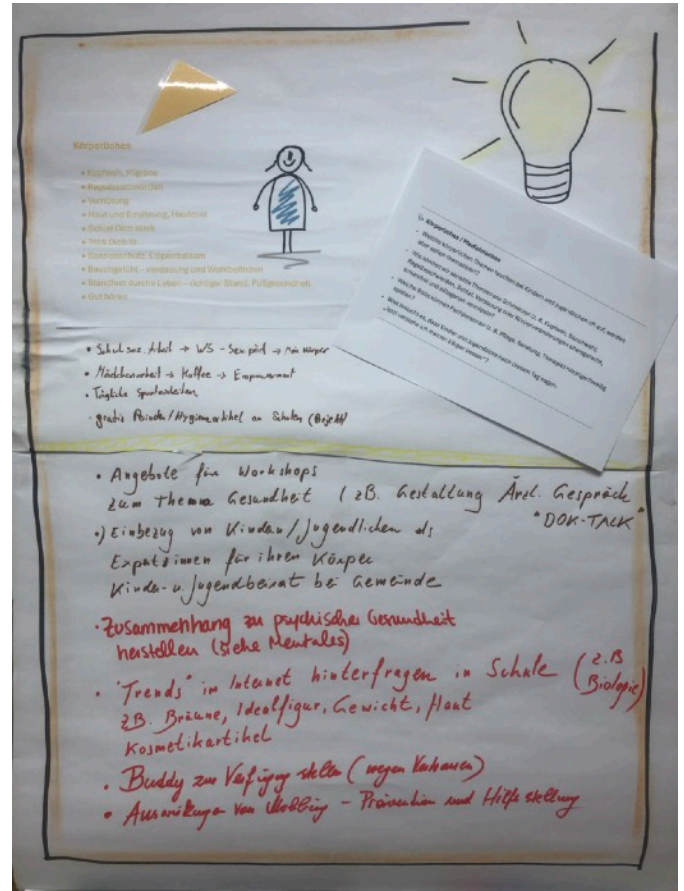 Körperliches
• Kopfweh, Migräne
• Regelbeschwerden
• Verhütung
• Haut und Ernährung, Hautbild
• Schlaf Dich stark
• Trink Dich fit
• Sonnenschutz, Lippenbalsam
• Bauchgefühl – Verdauung und Wohlbefinden
• Standfest durchs Leben – richtiger Stand, Fußgesundheit
• Gut hören
Körperliches / Medizinisches
• Welche körperlichen Themen tauchen bei Kindern und Jugendlichen oft auf, werden
aber selten thematisiert?
• Wie können wir sensible Themen wie Schmerzen (z. B. Kopfweh, Bauchweh)
Regelbeschwerden, Schlaf, Verdauung oder Körperveränderungen altersgerecht,
• Was braucht es, dass Kinder und Jugendliche nach diesem Tag sagen:
„Jetzt verstehe ich meinen Körper besser"?
• Schulsoz. Arbeit → WS - Sexpäd → Mein Körper
• Mädchenarbeit → Kaffee → Empowerment
• Tägliche Sporteinheiten
• gratis Binden/Hygieneartikel an Schulen (Projekt)
• Angebote für Workshops
zum Thema Gesundheit (zB. Gestaltung Ärztl. Gespräch
"DOK-TALK"
•) Einbezug von Kindern/Jugendlichen als
Expertinnen für ihren Körper
Kinder- u. Jugendbeirat bei Gemeinde
• Zusammenhang zu psychischer Gesundheit
herstellen (siehe Mentales)
• "Trends" im Internet hinterfragen in Schule (z.B
Biologie)
zB. Bräune, Idealfigur, Gewicht, Haut
Kosmetikartikel
• Buddy zur Verfügung stellen (wegen Vertrauen)
• Auswirkungen von Mobbing – Prävention und Hilfestellung